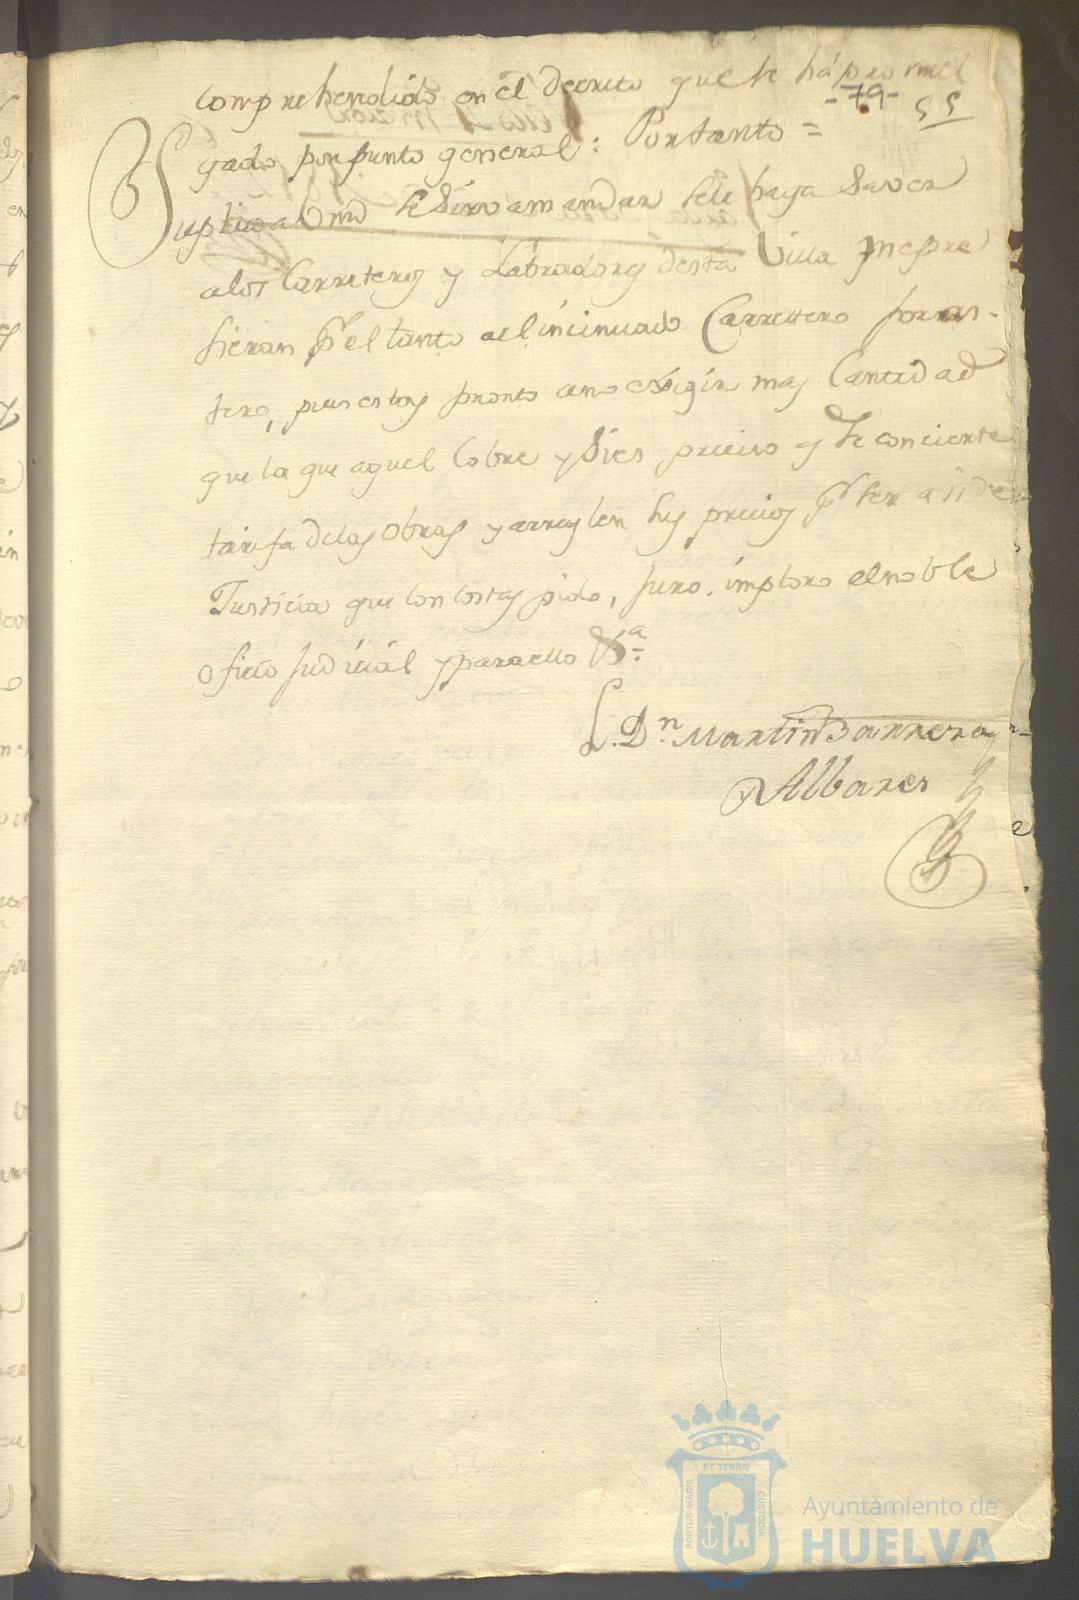 comprehendido en el decreto que se há promul
-79- 55
gado por punto general: Portanto =
Suplico a Vmd se sirva mandar se le haga saver
a los Carreteros y Labradores desta Villa me pre
fieran pr el tanto al incinuado Carretero foras-
tero, pues estoy pronto a no exsigir mas Cantidad
que la que aquel cobre y si es preciso y se concierte
tarifa de las Obras y arreglen sus precios pr ser así de
Justicia que con costas pido, juro, imploro el noble
oficio judicial y para ello &a=
L. Dn Martin Barrera
y Albares
PORTUS MARIS ET TERRÆ CUSTODIA
Ayuntamiento de
HUELVA